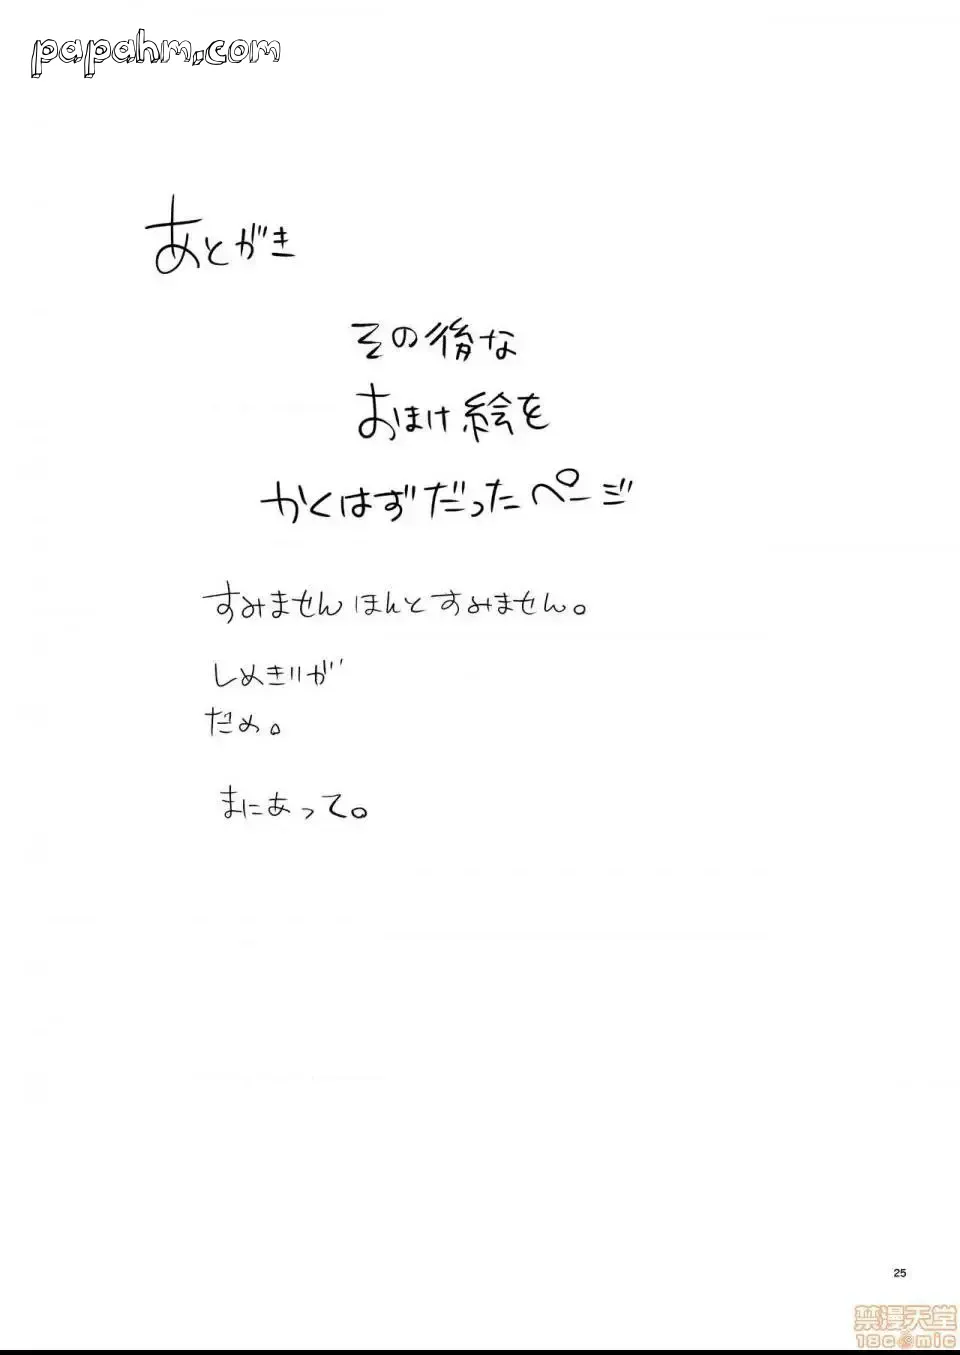 papahm.com
あとがき
その後な
おまけ絵を
かくはずだったページ
すみませんほんとすみません。
しめきりが
だめ。
まにあって。
25
禁漫天堂
18comic